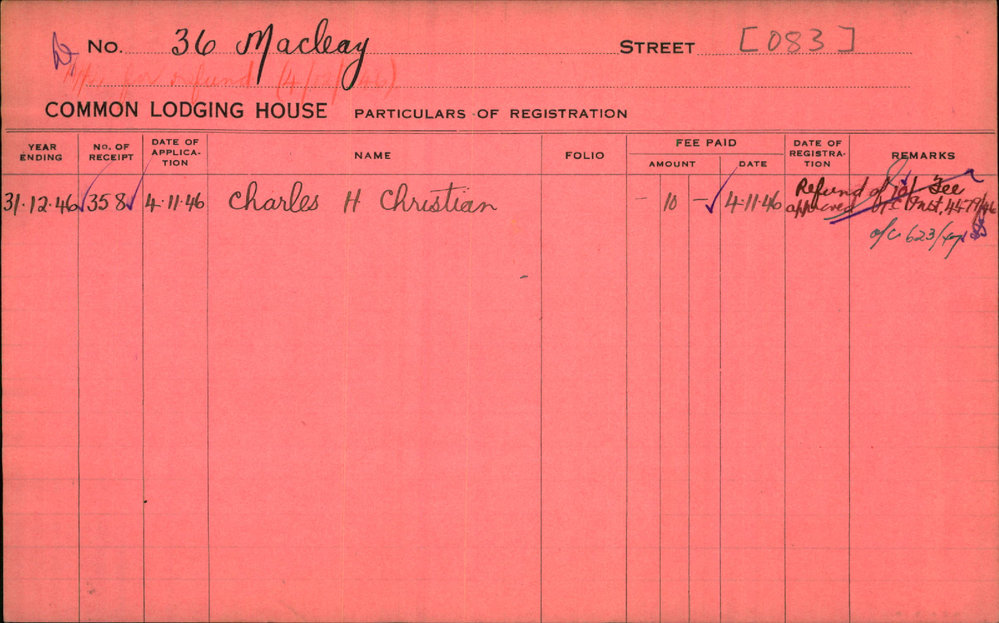 No. 36 Macleay STREET [083]
for refund (4/12/46)
COMMON LODGING HOUSE PARTICULARS OF REGISTRATION
YEAR ENDING No. OF RECEIPT DATE OF APPLICA-TION NAME FOLIO FEE PAID AMOUNT DATE DATE OF REGISTRA-TION REMARKS
31.12.46 358 4.11.46 Charles H Christian - 10 - 4.11.46 Refund of 10/- Fee
approved 4479/46
o/c 623/47